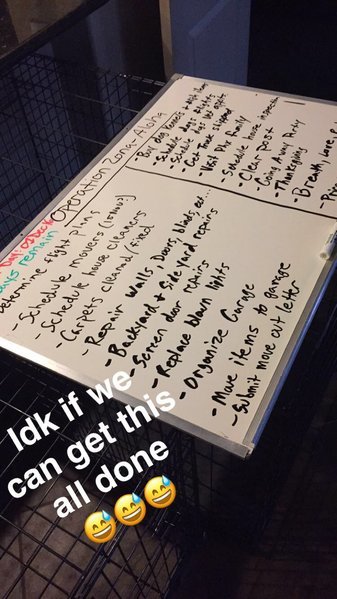 Operation Zona-Aloha
days remain
Determine flight plans
- Schedule movers (
- Schedule house cleaners
- Carpets cleaned/fixed
- Repair walls, Doors, blinds, ect...
- Backyard + Side yard repairs
- Screen door repairs
- Replace blown lights
- Organize Garage
- Move items to garage
- Submit move out letter
- Buy dog Kennels
- Schedule dogs flights
- Schedule dogs Vet appts
- Get Truck shipped
- Visit Phx family
- Schedule house inspection
- Clear post
- Going Away Party
- Thanksgiving
- Breath, Love,
Idk if we
can get this
all done
😅😅😅